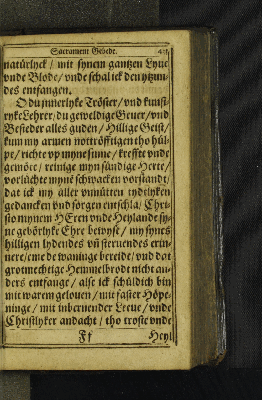 Sacrament Gebede.
natürlyck / mit synem gantzen Lyue
vnde Blode / vnde schal ick den ytzun-
des entfangen.
O du ynnerlyke Tröster / vnd kunst-
ryke Lehrer / du geweldige Geuer / vnd
Besteder alles guden / Hillige Geist /
kum my armen nottröfftigen tho hül-
pe / richte vp myne sinne / kreffte vnde
gemöte / reinige myn sündige Herte /
vorlüchte mynē schwacken vorstandt /
dat ick my aller vnnütten tydtlyken
gedancken vnd sorgen entschla / Chri-
sto mynem HEren vnde Heylande sy-
ne gebörlyke Ehre bewyse / my synes
hilligen lydendes vn̄ steruendes erin-
nere / eme de waninge bereide / vnd dat
grotmechtige Hemmelbrodt nicht an-
ders entfange / alse ick schüldich bin
mit warem gelouen / mit faster Höpe-
ninge / mit inbernender Leeue / vnde
Christlyker andacht / tho troste vnde
Ff Heyl